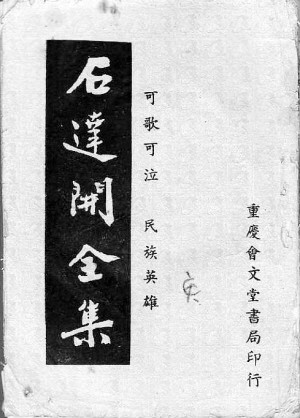 重慶會文堂書局印行
可歌可泣 民族英雄
石達開全集